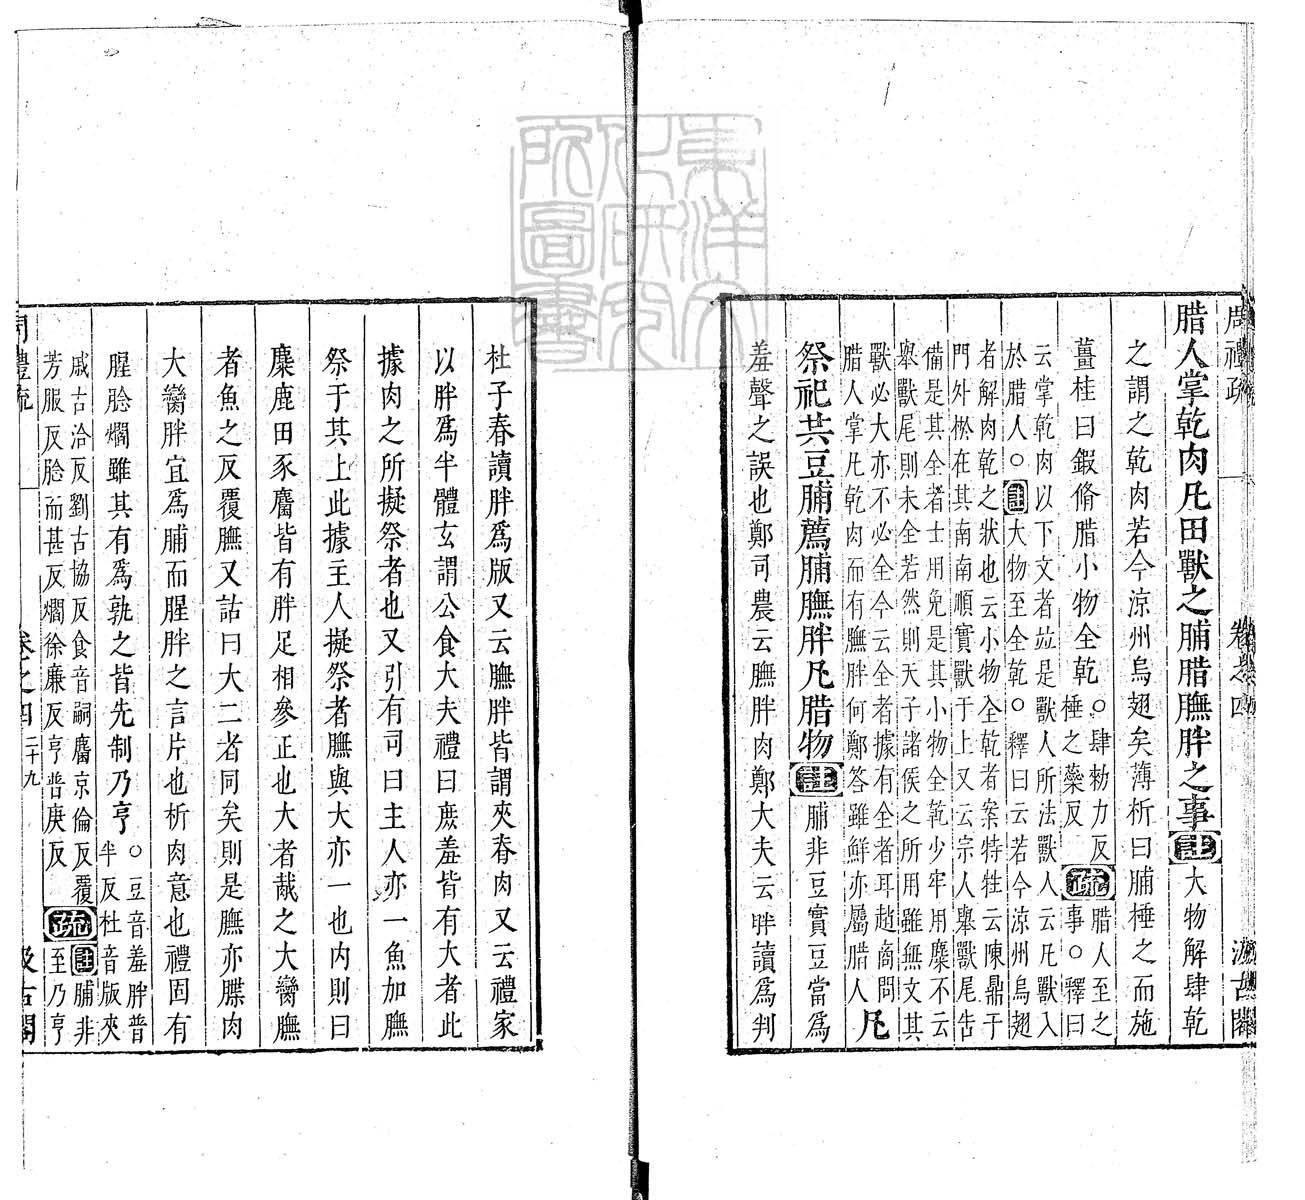 周禮疏 卷之四 汲古閣
腊人掌乾肉凡田獸之脯腊膴胖之事註大物解肆乾
之謂之乾肉若今涼州烏翅矣薄析曰脯棰之而施
薑桂曰鍜脩腊小物全乾○肆勑力反
棰之蘂反疏腊人至之
事○釋曰
云掌乾肉以下文者竝是獸人所法獸人云凡獸入
於腊人○註大物至全乾○釋曰云若今涼州烏翅
者解肉乾之狀也云小物全乾者案特牲云陳鼎于
門外棜在其南南順實獸于上又云宗人舉獸尾告
備是其全者士用兔是其小物全乾少牢用麋不云
舉獸尾則未全若然則天子諸侯之所用雖無文其
獸必大亦不必全今云全者據有全者耳趙商問
腊人掌凡乾肉而有膴胖何鄭答雖鮮亦屬腊人凡
祭祀共豆脯薦脯膴胖凡腊物註脯非豆實豆當爲
羞聲之誤也鄭司農云膴胖肉鄭大夫云胖讀爲判
杜子春讀胖爲版又云膴胖皆謂夾脊肉又云禮家
以胖爲半體玄謂公食大夫禮曰庶羞皆有大者此
據肉之所擬祭者也又引有司曰主人亦一魚加膴
祭于其上此據主人擬祭者膴與大亦一也内則曰
麋鹿田豕麕皆有胖足相參正也大者胾之大臠膴
者魚之反覆膴又詁曰大二者同矣則是膴亦牒肉
大臠胖宜爲脯而腥胖之言片也析肉意也禮固有
腥腍爓雖其有爲孰之皆先制乃亨○豆音羞胖普
半反杜音版夾
戚古洽反劉古協反食音嗣麕京倫反覆
芳服反腍而甚反爓徐廉反亨普庚反疏註脯非
至乃亨
周禮疏 卷之四 二十九 汲古閣